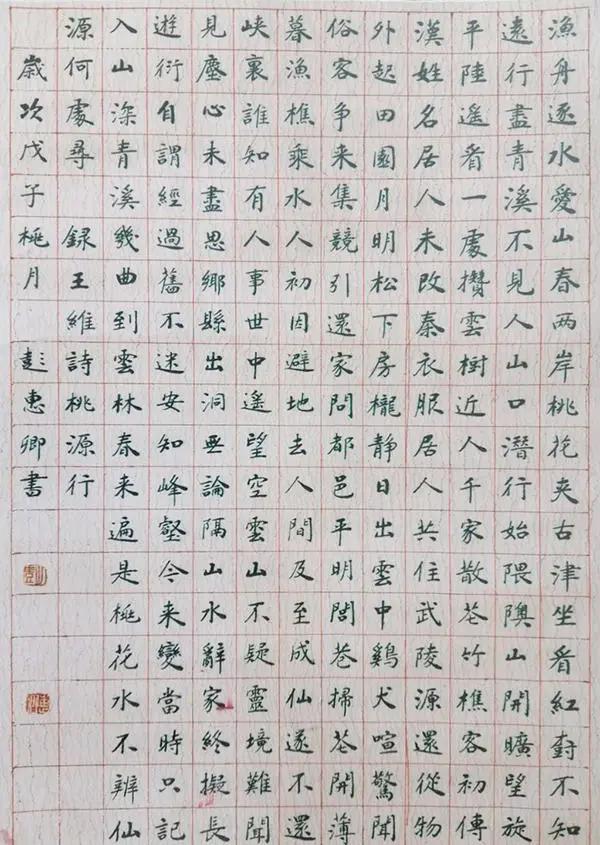 漁舟逐水愛山春两岸桃花夹古津坐看紅樹不知
遠行盡青溪不見人山口潛行始隈隩山開曠望旋
平陸遥看一處攢雲樹近人千家散花竹樵客初傳
漢姓名居人未改秦衣服居人共住武陵源還從物
外起田園月明松下房櫳静日出雲中鷄犬喧驚聞
俗客争来集競引還家問都邑平明閭巷掃花開薄
暮漁樵乘水人初因避地去人間及至成仙遂不還
峡裏誰知有人事世中遥望空雲山不疑靈境難聞
見塵心未盡思鄉縣出洞無論隔山水辭家終擬長
遊衍自謂經過舊不迷安知峰壑今来變當時只記
入山深青溪幾曲到雲林春来遍是桃花水不辨仙
源何處尋 録王維詩桃源行
歲次戊子桃月 彭惠卿書